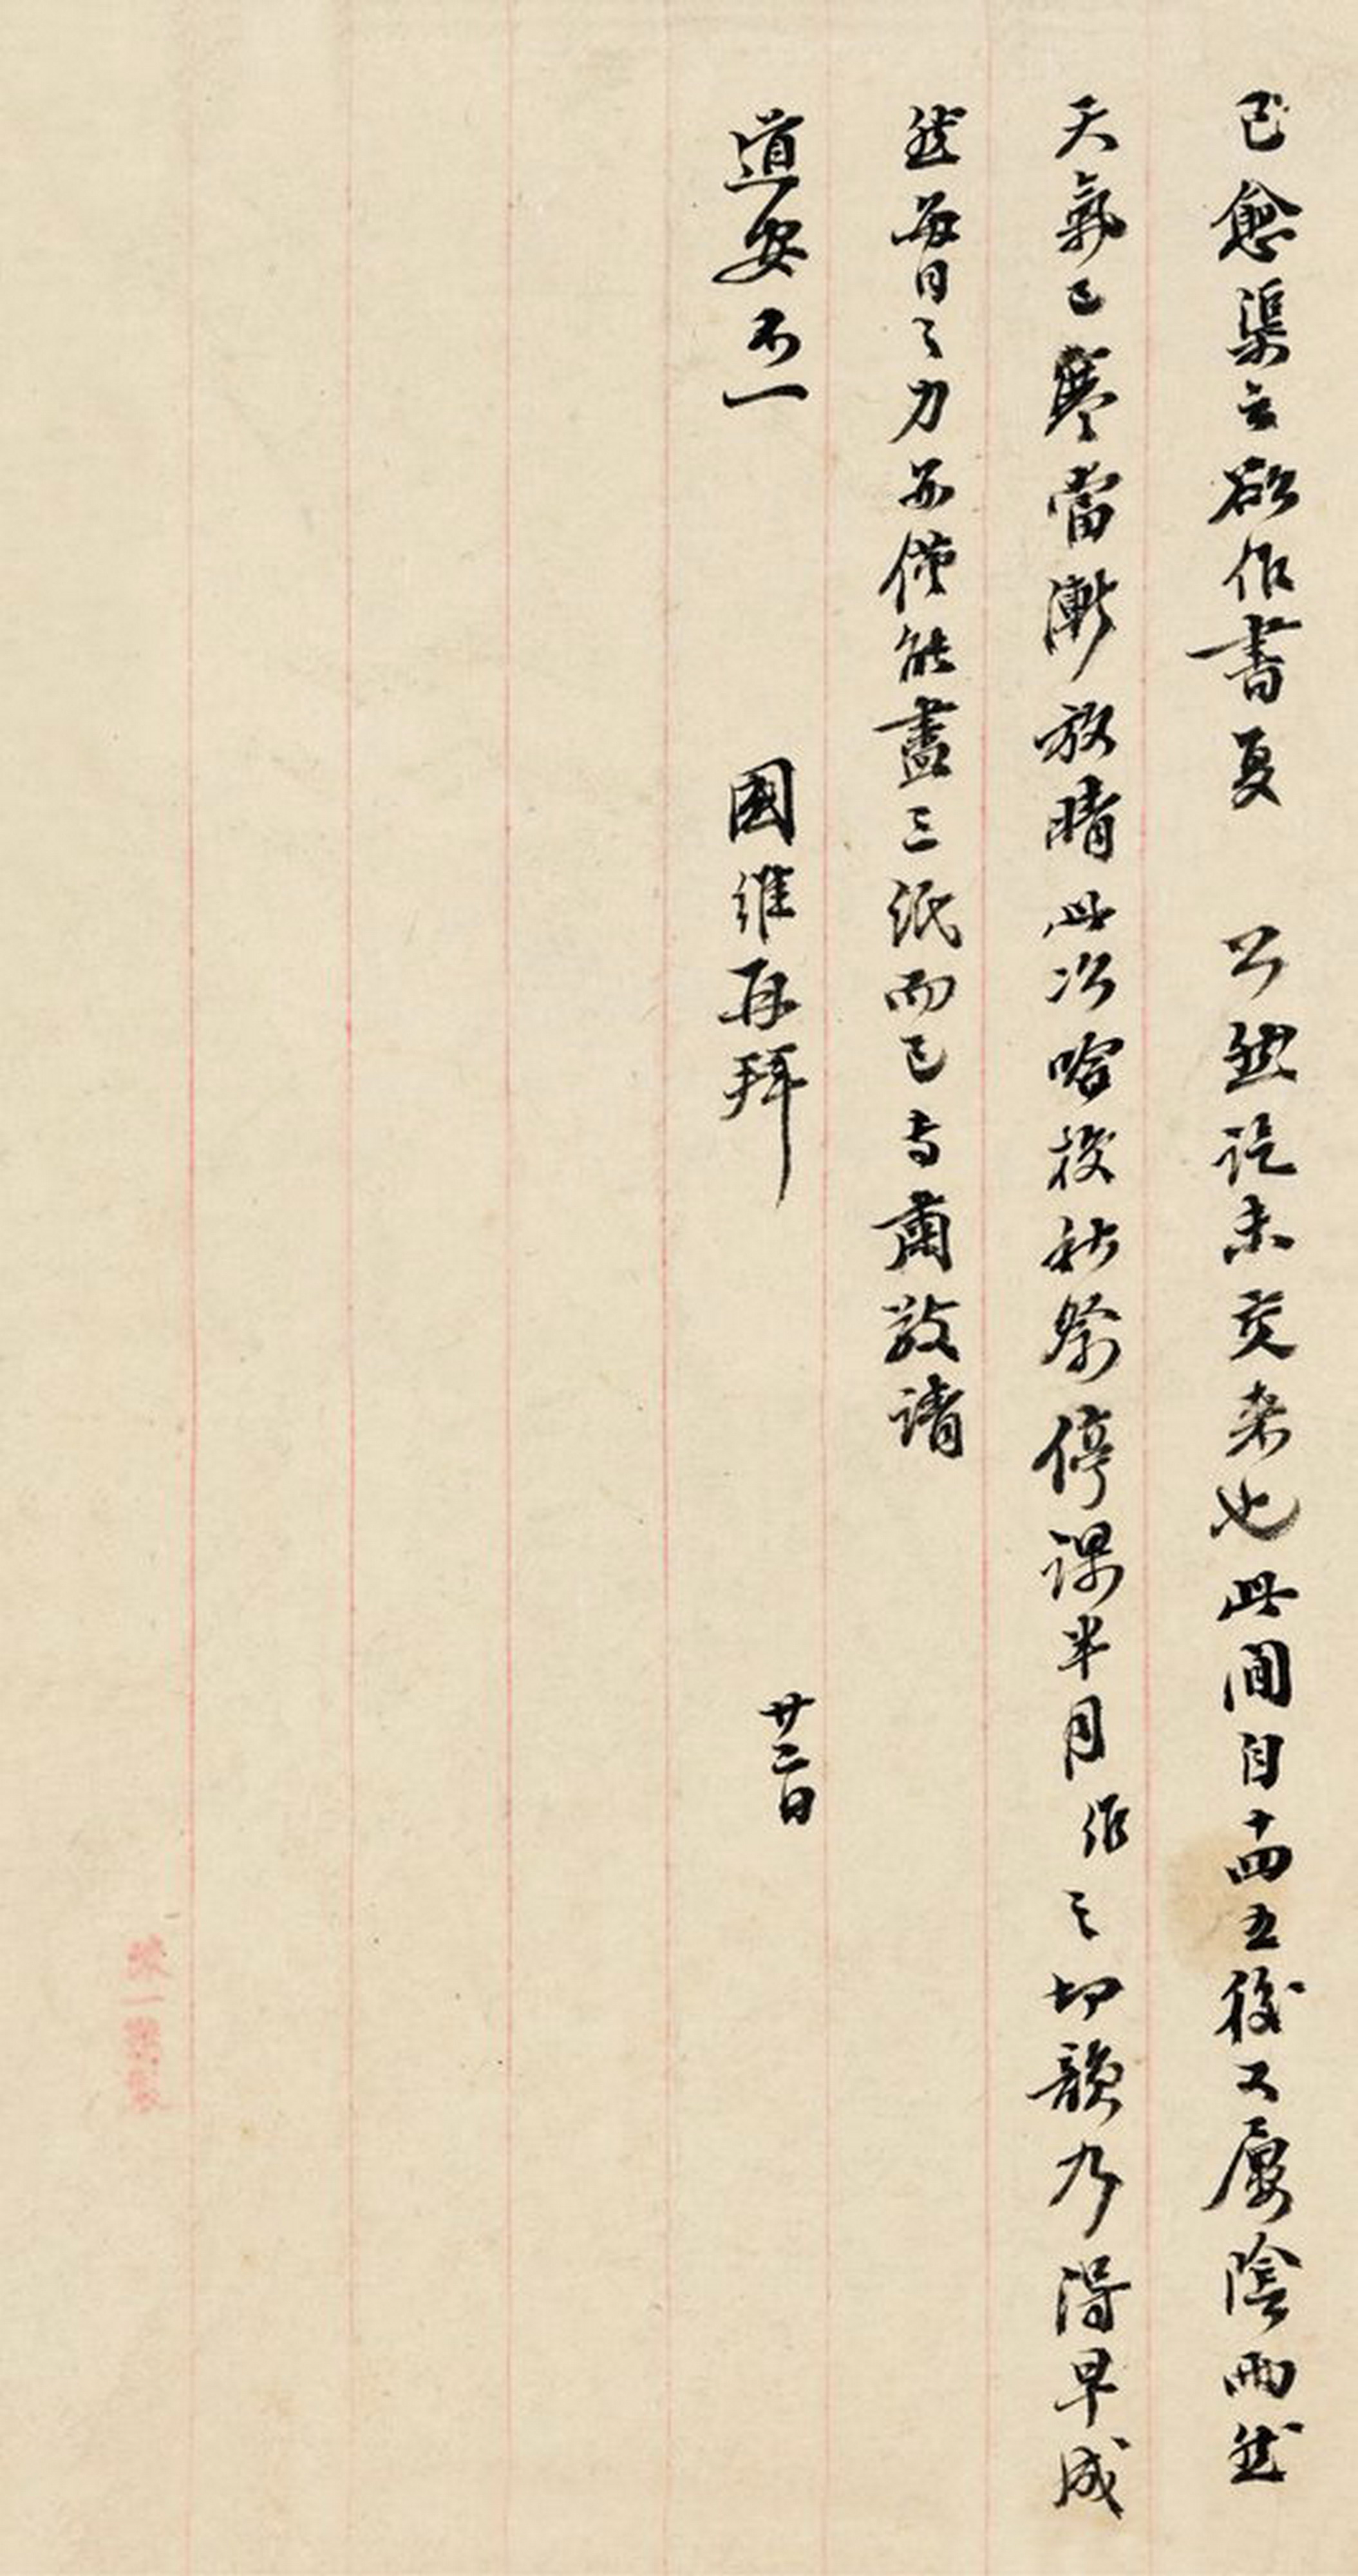 已愈渠云欲作書复 公然訖未交来也此間自十四五後又屢陰雨然
天氣已寒當漸放晴此次哈校秋祭停課半月作之切韻乃得早成
然每日之力亦僅能盡三紙而已专肅敬請
道安不一 國維再拜 廿二日